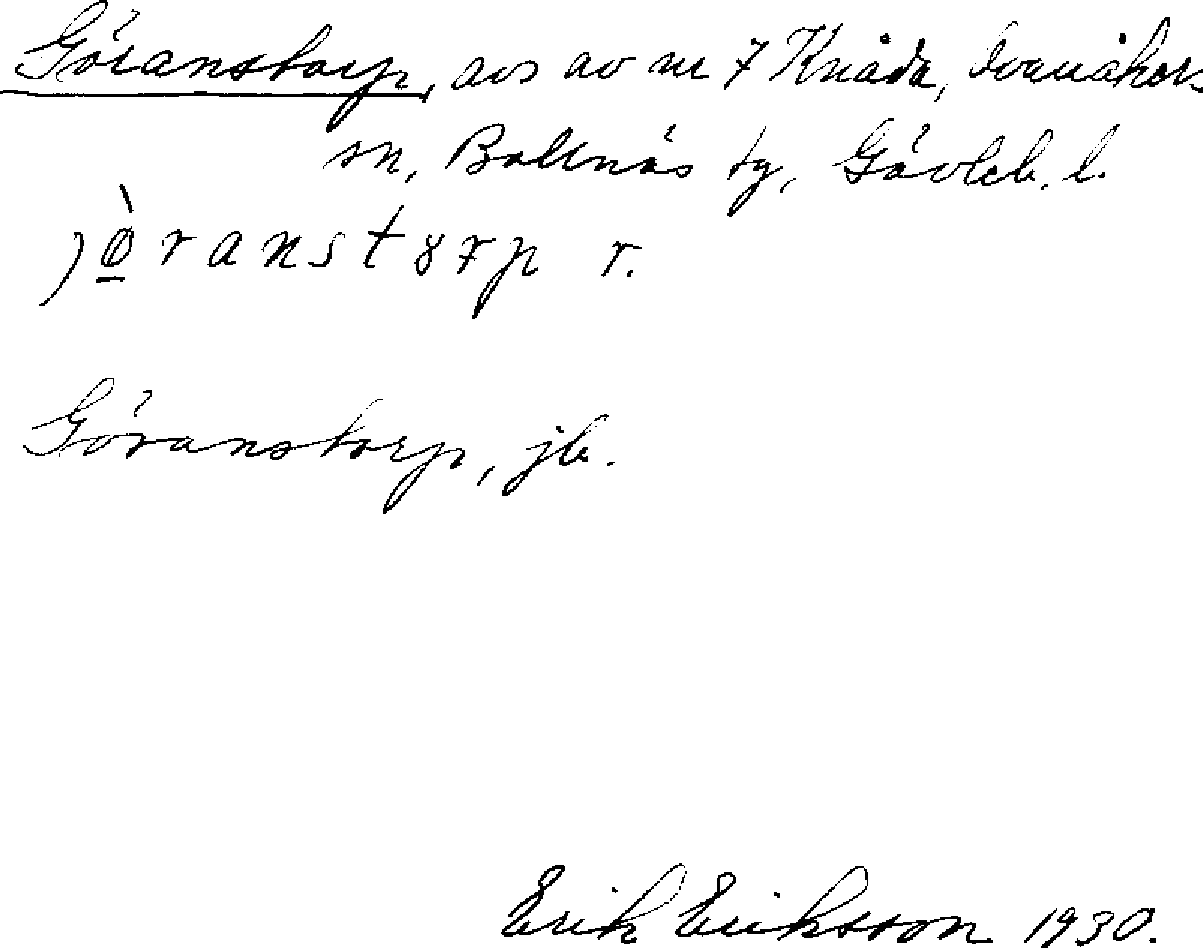 Göranstorp, avs av nr 7 Knåda, Svanåkers
sn, Bollnäs tg, Gävleb. l.
jø̀ranstɤrp r.
Göranstorp, jb.
Erik Eriksson 1930.